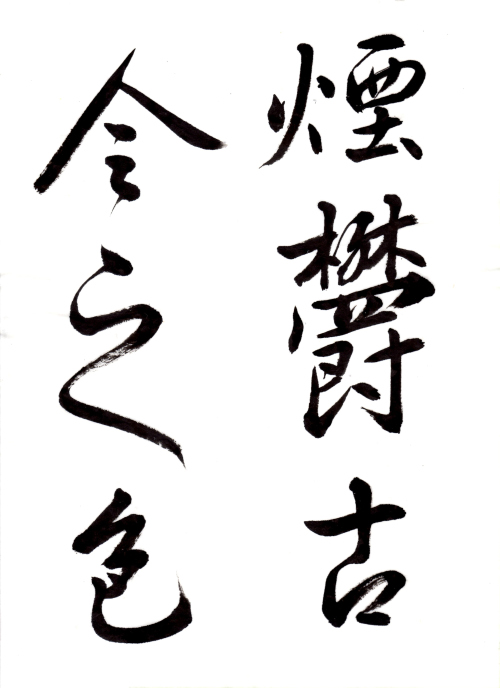 煙欝古
今之色